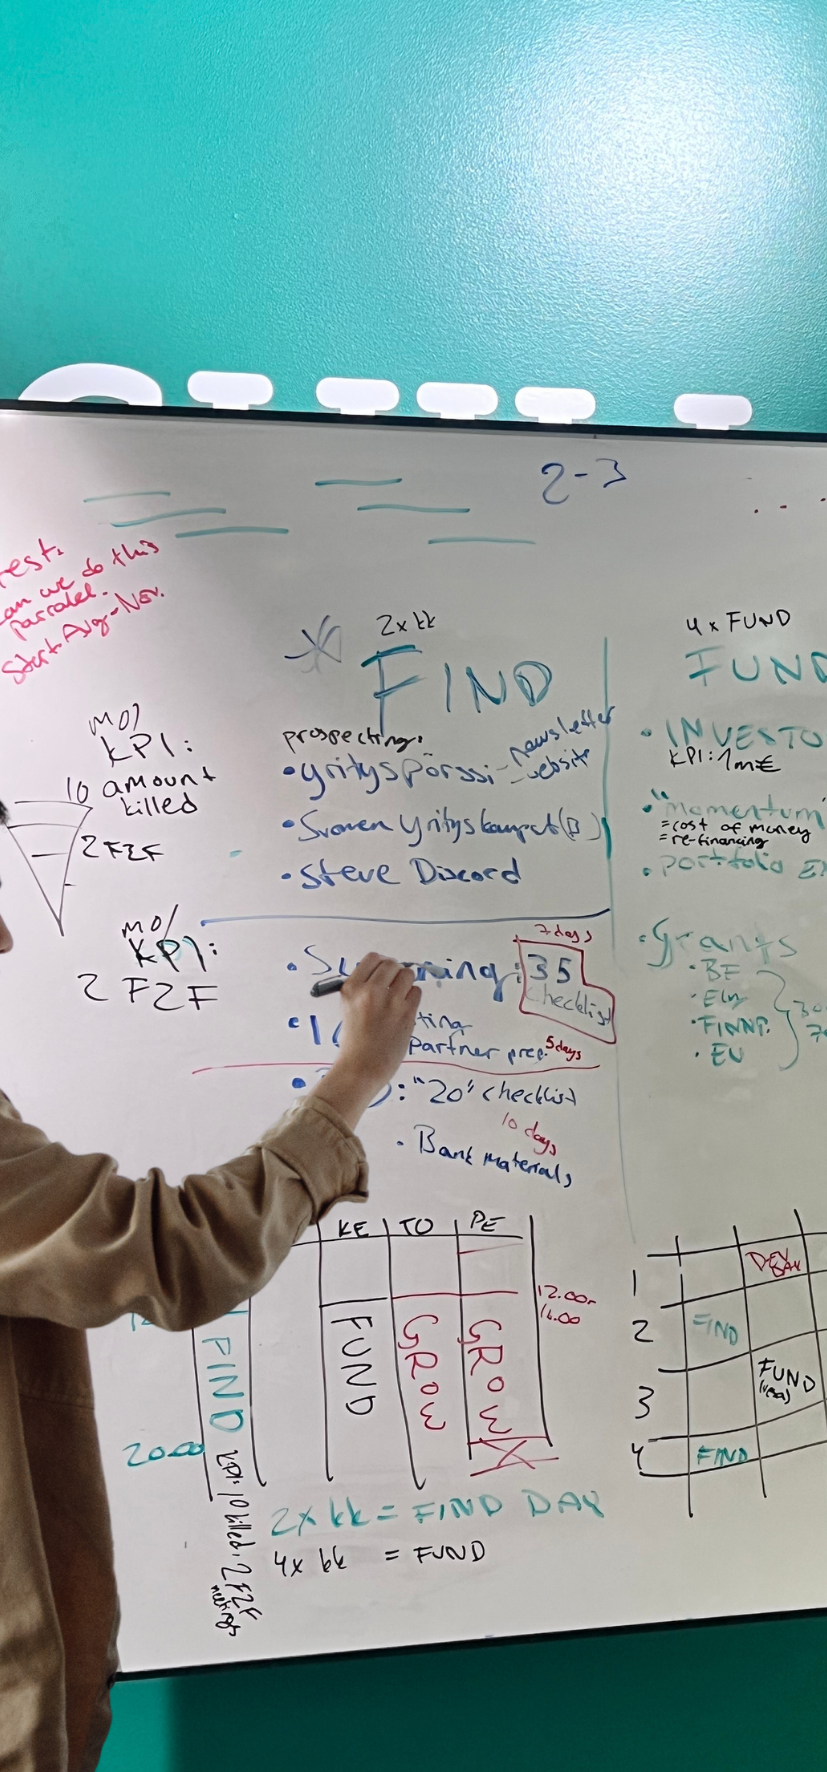 2-3
can we do this
Start Aug-Nov.
mo/
KPI:
10 amount
killed
2 F2F
mo/
KPI:
2 F2F
2x kk
FIND
prospecting:
• yrityspörssi - newsletter
- website
• Suomen Yrityskaupat (B)
• Steve Discord
7 days
35
checklist
Partner prep 5days
: "20" checklist
10 days
• Bank materials
4 x FUND
FUND
• INVESTO
KPI: 1m€
• "momentum"
= cost of money
= re-financing
• portfolio
• Grants
• BF
• Ely
• FINNP.
• EU
KE TO PE
12.00-
16.00
FIND
FUND
GROW
GROW
20.00
KPI: 10 killed, 2 F2F
meetings
2x kk = FIND DAY
4x kk = FUND
1 DEV DAY
2 FIND
3 FUND
4 FIND